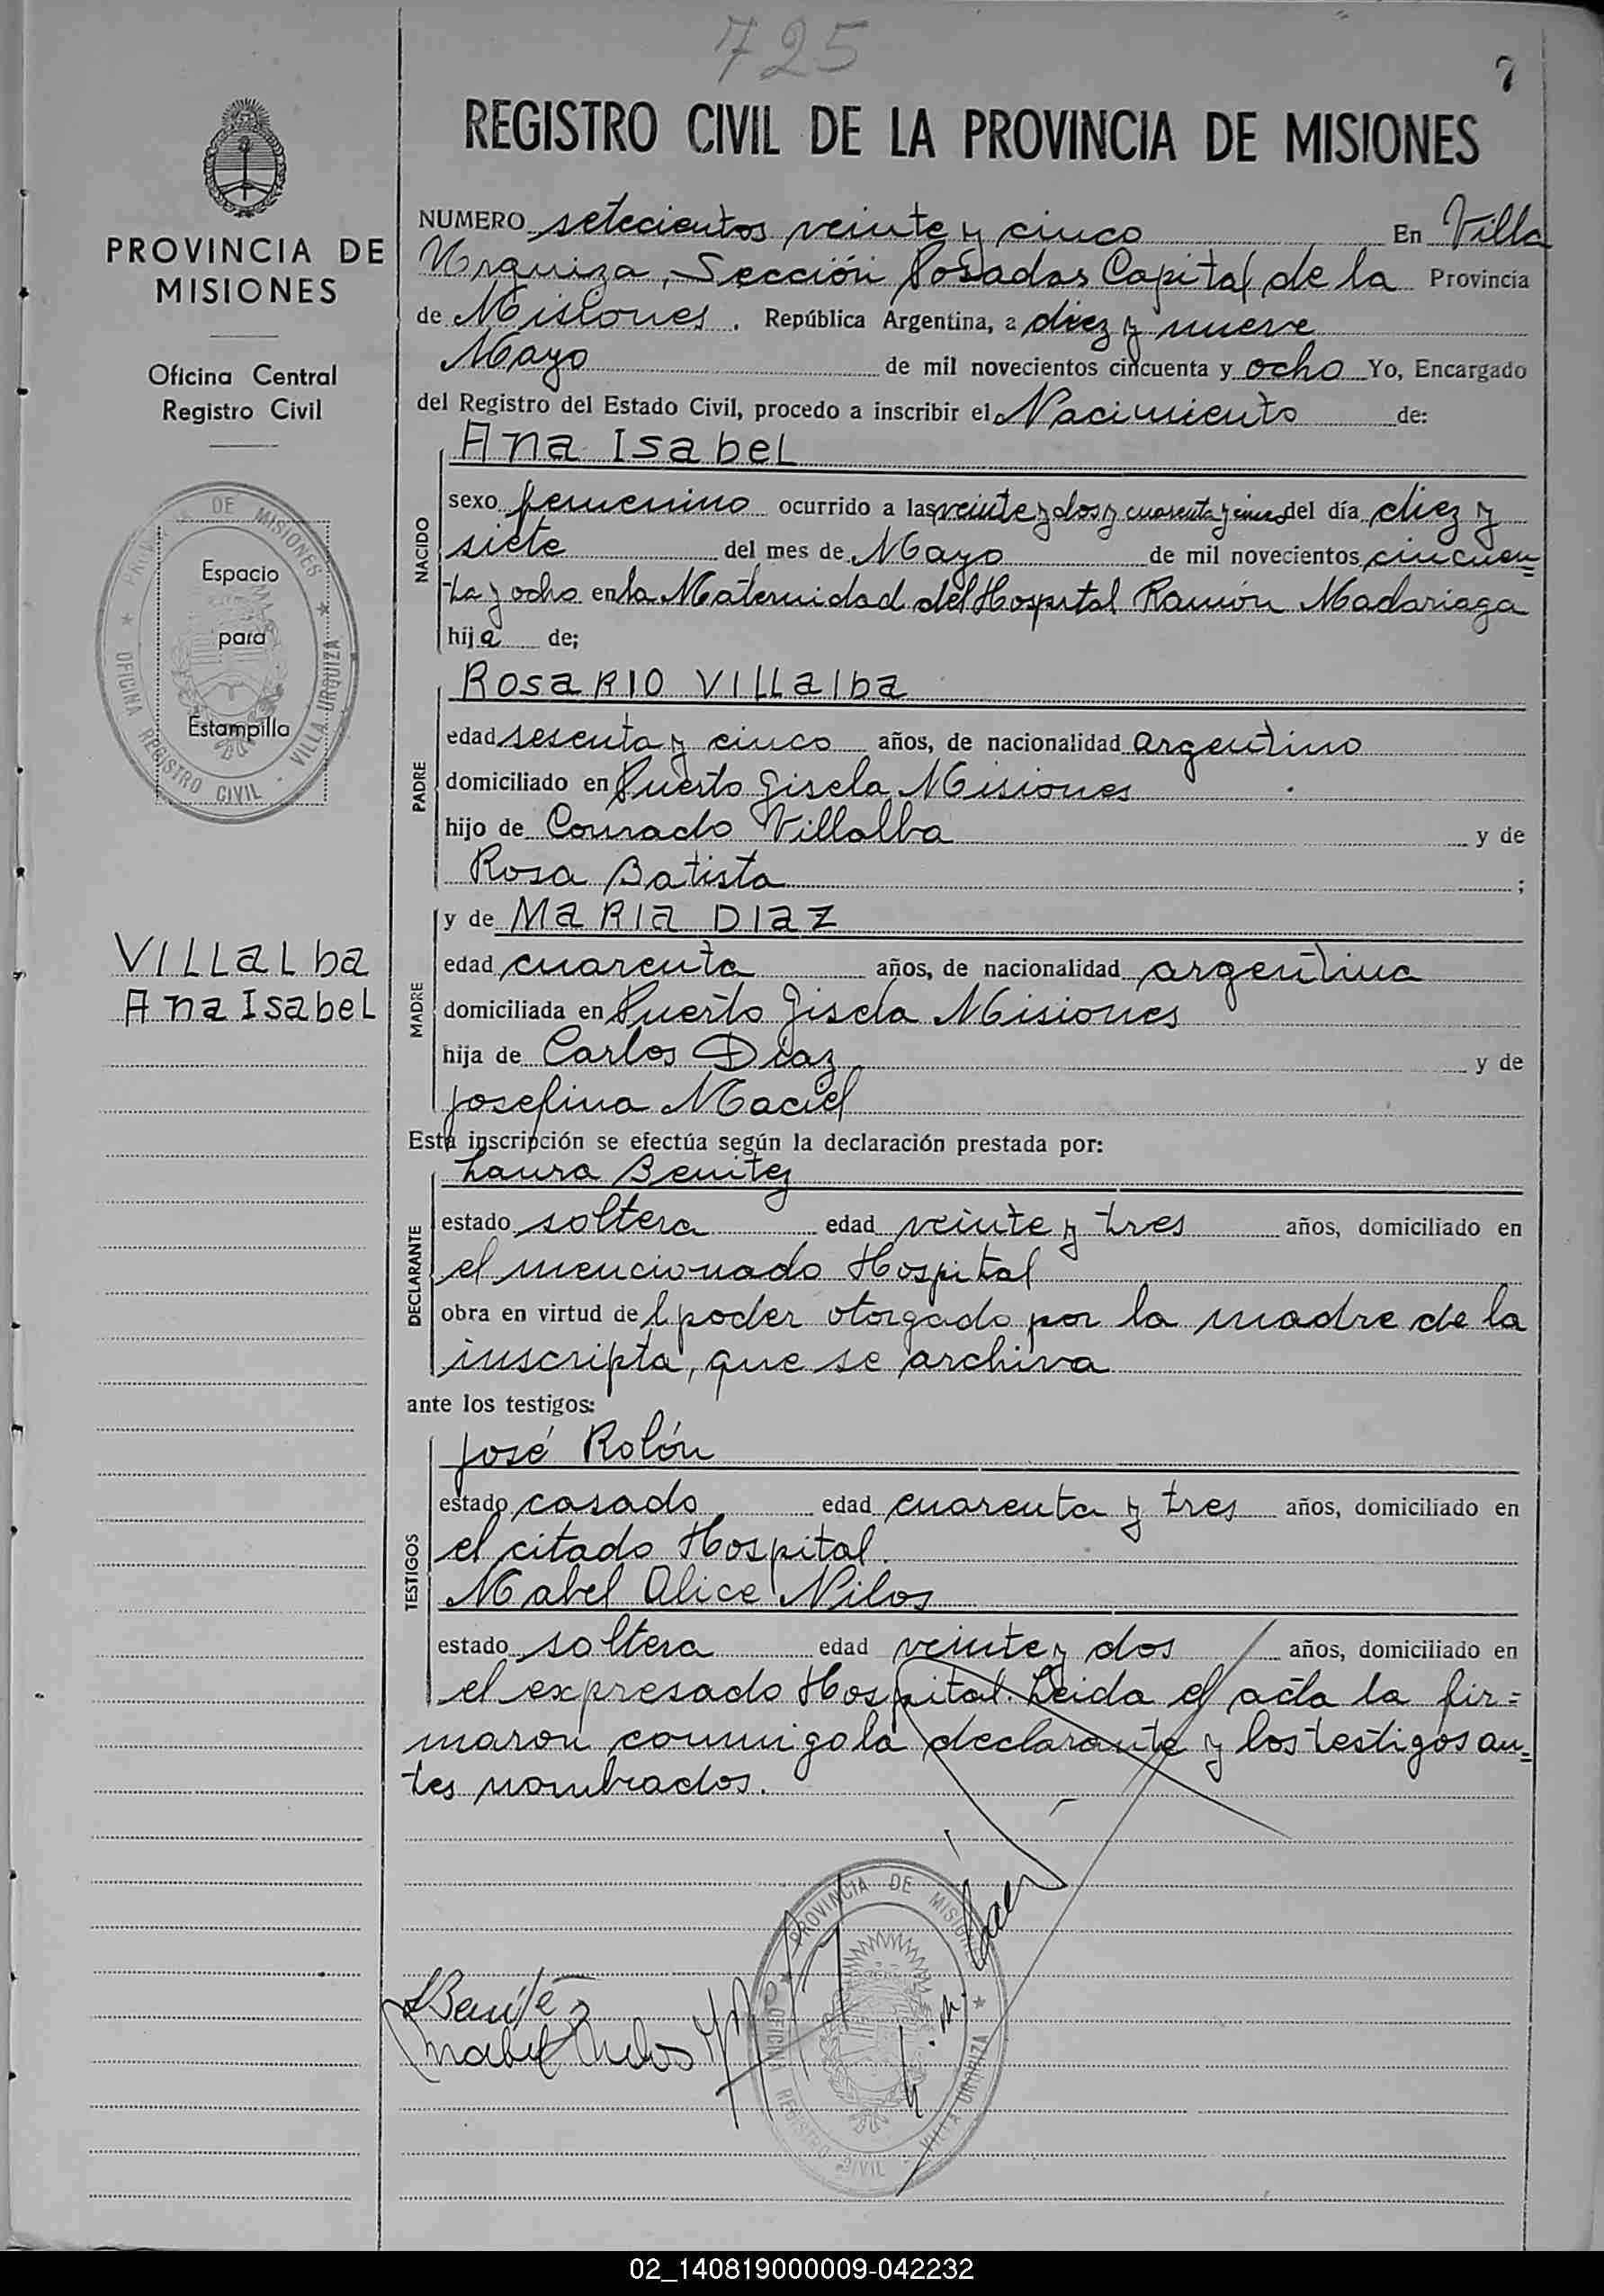 725
7
REGISTRO CIVIL DE LA PROVINCIA DE MISIONES
PROVINCIA DE
MISIONES
Oficina Central
Registro Civil
PROVINCIA DE MISIONES
Espacio
para
Estampilla
OFICINA REGISTRO CIVIL - VILLA URQUIZA
VILLALba
Ana IsabeL
NUMERO setecientos veinte y cinco En Villa
Urquiza, Sección Posadas Capital de la Provincia
de Misiones. República Argentina, a diez y nueve
Mayo de mil novecientos cincuenta y ocho Yo, Encargado
del Registro del Estado Civil, procedo a inscribir el Nacimiento de:
Ana IsabeL
NACIDO
sexo femenino ocurrido a las veinte y dos y cuarenta y cinco del día diez y
siete del mes de Mayo de mil novecientos cincuen=
ta y ocho en la Maternidad del Hospital Ramón Madariaga
hija de;
RosaRIO VILLalba
PADRE
edad sesenta y cinco años, de nacionalidad argentino
domiciliado en Puerto Gisela Misiones
hijo de Conrado Villalba y de
Rosa Batista ;
y de MaRIa DIaz
MADRE
edad cuarenta años, de nacionalidad argentina
domiciliada en Puerto Gisela Misiones
hija de Carlos Díaz y de
Josefina Maciel
Esta inscripción se efectúa según la declaración prestada por:
Laura Benitez
DECLARANTE
estado soltera edad veinte y tres años, domiciliado en
el mencionado Hospital
obra en virtud del poder otorgado por la madre de la
inscripta, que se archiva
ante los testigos:
José Rolón
TESTIGOS
estado casado edad cuarenta y tres años, domiciliado en
el citado Hospital.
Mabel Alice Nilos
estado soltera edad veinte y dos años, domiciliado en
el expresado Hospital. Leida el acta la fir=
maron conmigo la declarante y los testigos an=
tes nombrados.
PROVINCIA DE MISIONES
OFICINA REGISTRO CIVIL - VILLA URQUIZA
LBenítez
02_140819000009-042232